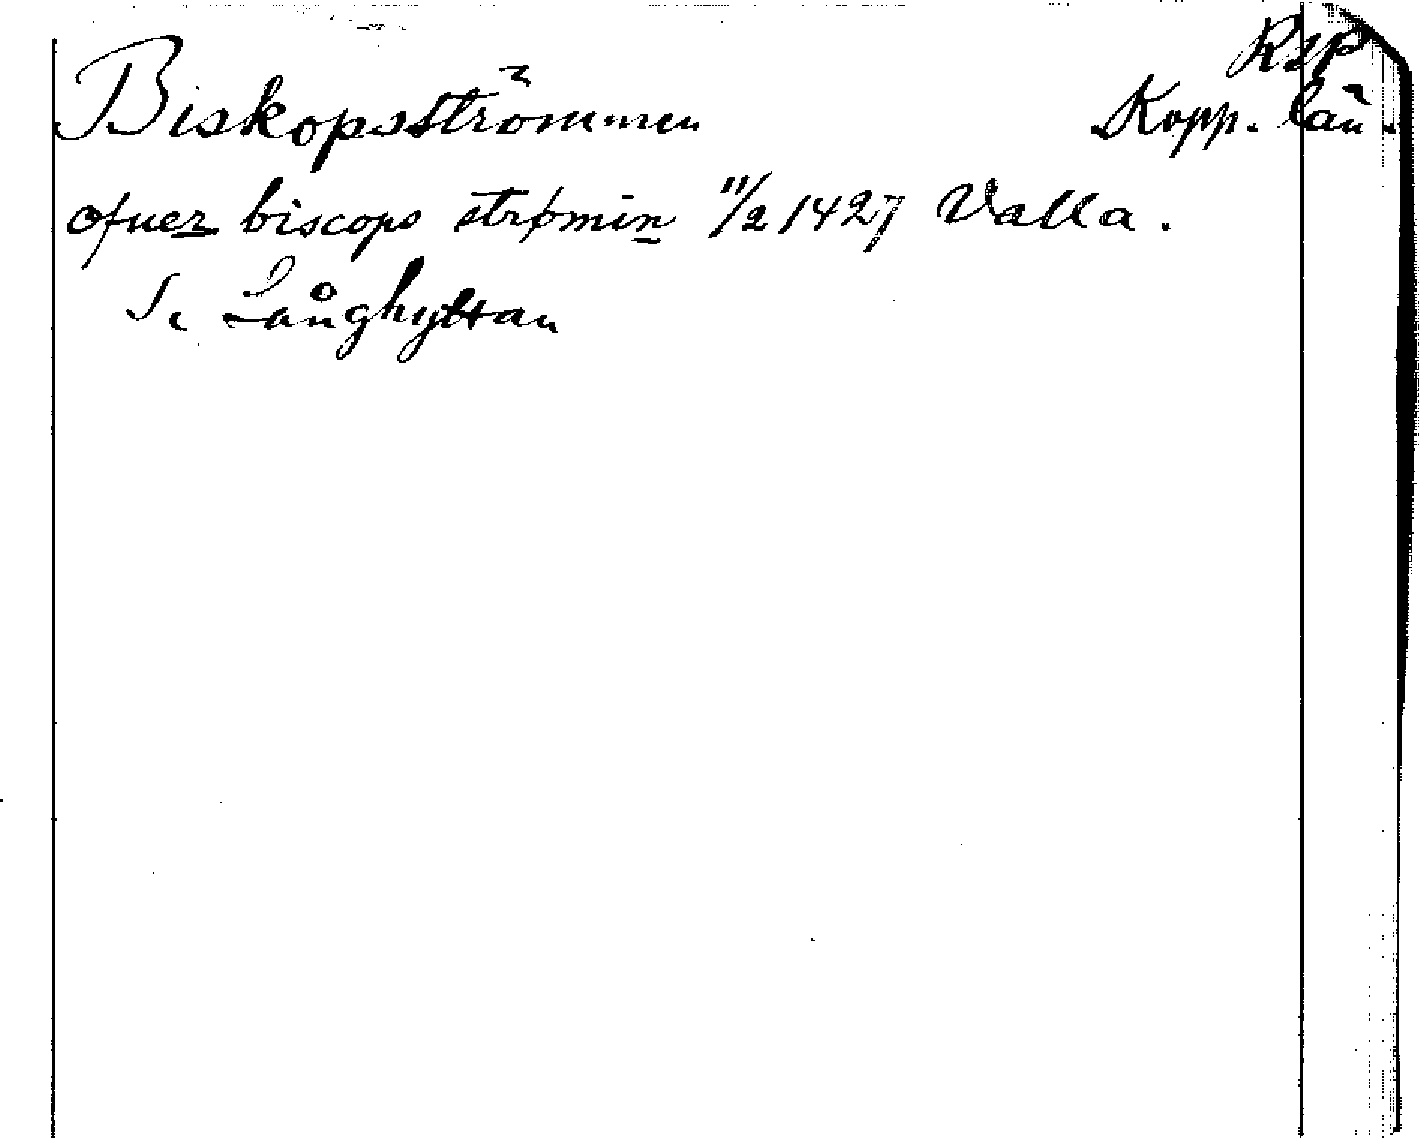 RSP
Biskopsströmmen Kopp. län.
ofuer biscops strømin 11/2 1427 Valla.
S. Långhyttan